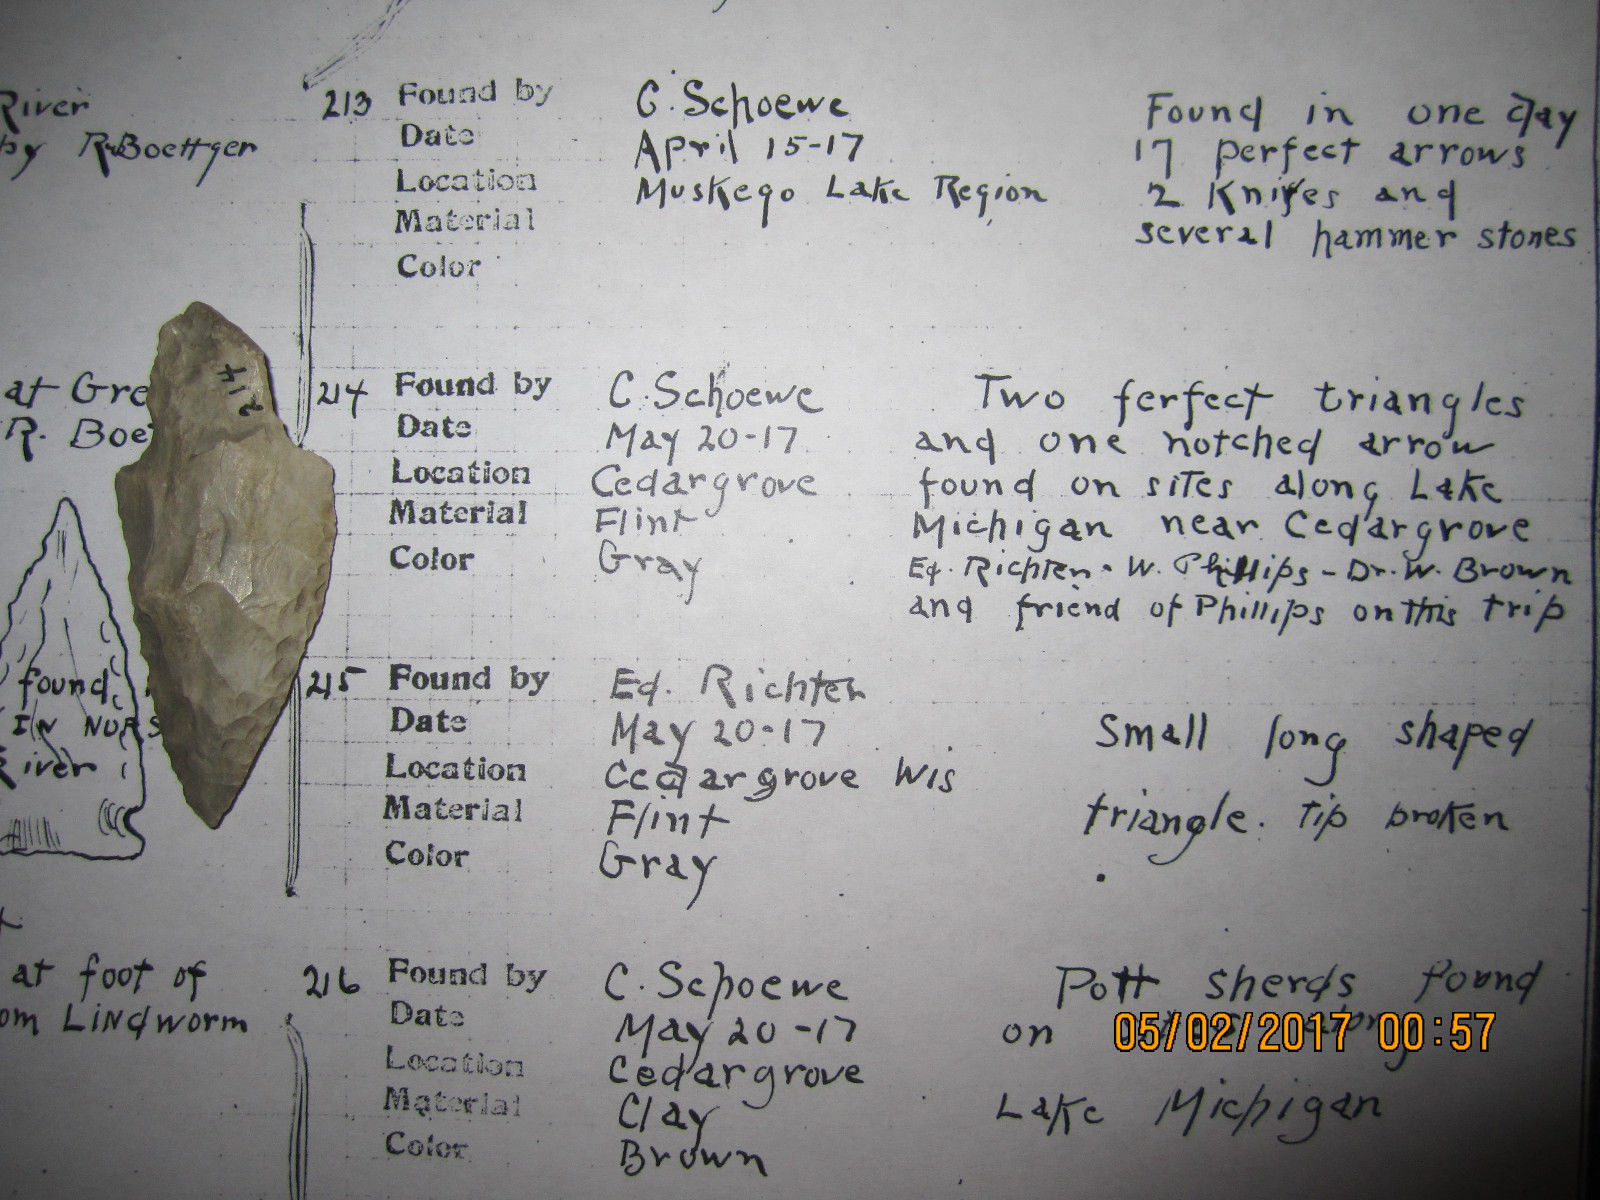 River
by R. Boettger
at Gre
R. Boe
found
IN NORS
River
at foot of
om Lindworm
214
213 Found by C. Schoewe
Date April 15-17
Location Muskego Lake Region
Material
Color
Found in one day
17 perfect arrows
2 Knifes and
several hammer stones
214 Found by C. Schoewe
Date May 20-17
Location Cedargrove
Material Flint
Color Gray
Two ferfect triangles
and one notched arrow
found on sites along Lake
Michigan near Cedargrove
Ed. Richter - W. Phillips - Dr. W. Brown
and friend of Phillips on this trip
215 Found by Ed. Richter
Date May 20-17
Location Cedargrove Wis
Material Flint
Color Gray
Small long shaped
triangle. Tip broken
216 Found by C. Schoewe
Date May 20-17
Location Cedargrove
Material Clay
Color Brown
Pott sherds found
on along
Lake Michigan
05/02/2017 00:57